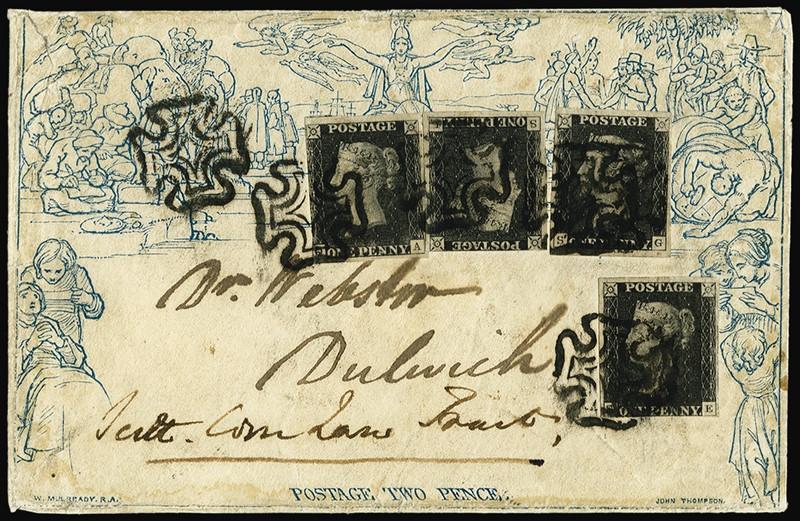 POSTAGE
ONE PENNY A
S ONE PE
POSTAGE
POSTAGE
S ONE PENNY G
Dr. Webster
Dulwich
POSTAGE
ONE PENNY E
Corn Law
POSTAGE TWO PENCE.
W. MULREADY. R.A.
JOHN THOMPSON.